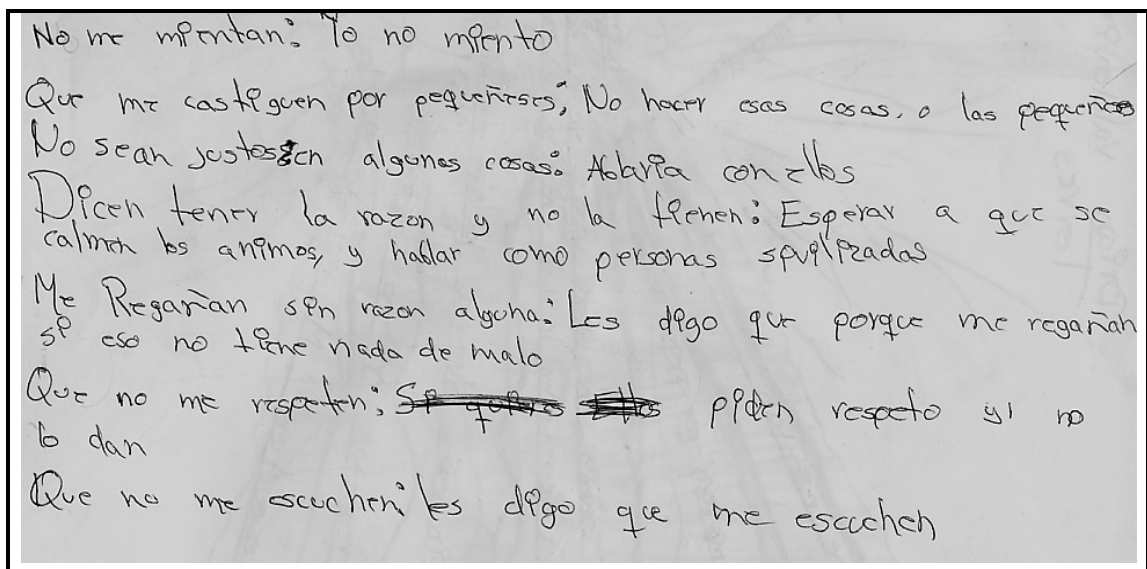 No me mientan: Yo no miento
Que me castiguen por pequeñeses; No hacer esas cosas, o las pequeñas
No sean justos en algunas cosas: Ablaria con ellos
Dicen tener la razon y no la tienen: Esperar a que se
calmen los animos, y hablar como personas sivilizadas
Me Regañan sin razon alguna: Les digo que porque me regañan
si eso no tiene nada de malo
Que no me respeten; piden respeto y no
lo dan
Que no me escuchen: les digo que me escuchen